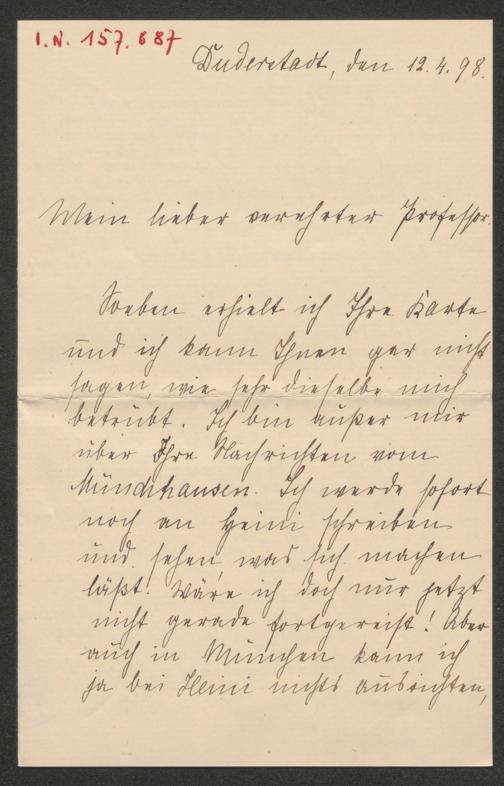 I.N. 157.687
Duderstadt, den 12.4.98.
Mein lieber verehrter Professor.
Soeben erhielt ich Ihre Karte
und ich kann Ihnen gar nicht
sagen, wie sehr dieselbe mich
betrübt. Ich bin außer mir
über Ihre Nachrichten vom
Münchhausen. Ich werde sofort
noch an Heini schreiben
und sehen was sich machen
läßt. Wäre ich doch nur jetzt
nicht gerade fortgereist! Aber
auch in München kann ich
ja bei Heini nichts ausrichten,